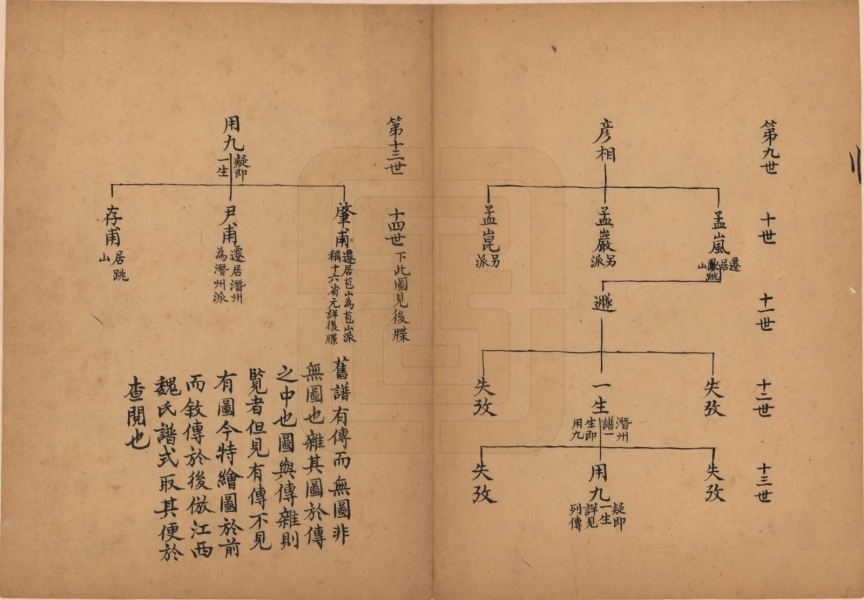 第九世
十世
十一世
十二世
十三世
彥相
孟嵐
遷居
山跳
孟巖
另派
孟崑
另派
遯
失攷
一生
潛州譜一生即用九
失攷
失攷
用九
疑即一生詳見列傳
失攷
第十三世
十四世
下此圖見後牒
用九
疑即一生
肇甫
遷居苞山為苞山派
稱十六省元詳後牒
尹甫
遷居潛州為潛州派
存甫
居跳山
舊譜有傳而無圖非
無圖也雜其圖於傳
之中也圖與傳雜則
覽者但見有傳不見
有圖今特繪圖於前
而敘傳於後倣江西
魏氏譜式取其便於
查閱也